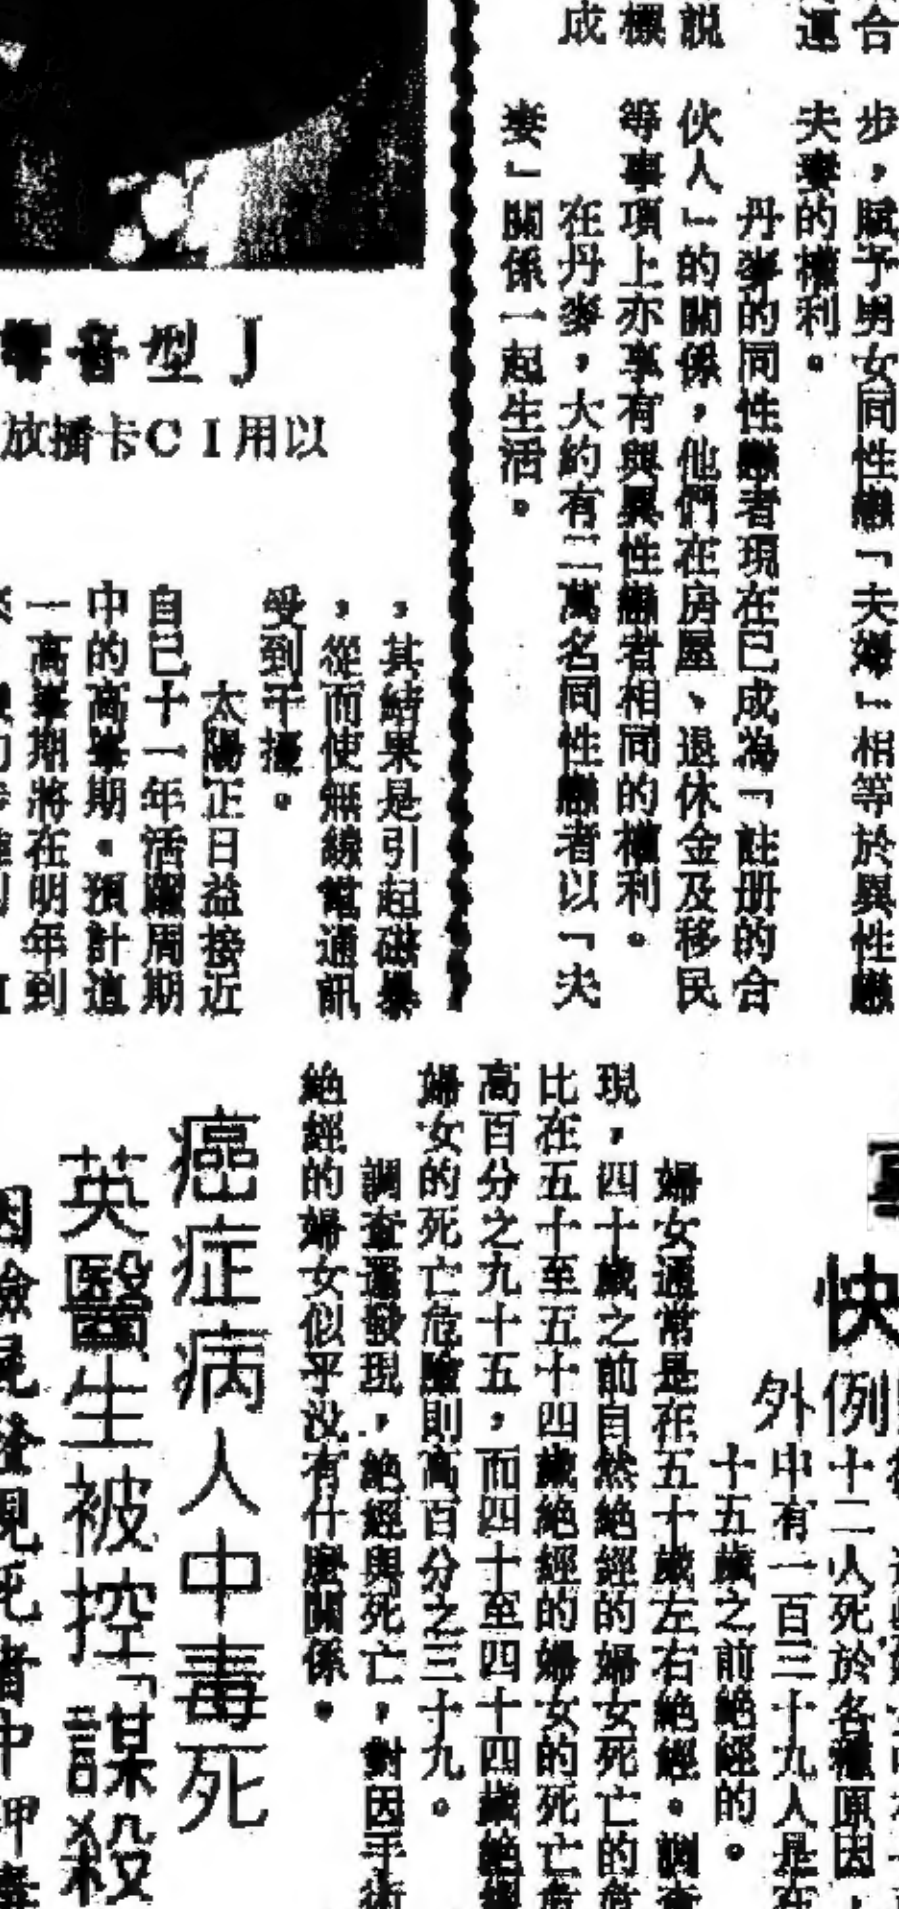 合
運
説
標
成
步，賦予男女同性戀「夫婦」相等於異性戀
夫妻的權利。
丹麥的同性戀者現在已成為「註册的合
伙人」的關係，他們在房屋、退休金及移民
等事項上亦享有與異性戀者相同的權利。
在丹麥，大約有二萬名同性戀者以「夫
妻」關係一起生活。
響音型J
放播卡CI用以
，其結果是引起磁暴
，從而使無綫電通訊
受到干擾。
太陽正日益接近
自己十一年活躍周期
中的高峯期。預計這
一高峯期將在明年到
快
例
外
十二人死於各種原因，
中有一百三十九人是在
十五歲之前絕經的。
婦女通常是在五十歲左右絕經。調查
現，四十歲之前自然絕經的婦女死亡的危
比在五十至五十四歲絕經的婦女的死亡危
高百分之九十五，而四十至四十四歲絕經
婦女的死亡危險則高百分之三十九。
調查還發現，絕經與死亡，對因手術
絕經的婦女似乎没有什麽關係。
癌症病人中毒死
英醫生被控「謀殺
因驗屍發現死者中鉀毒